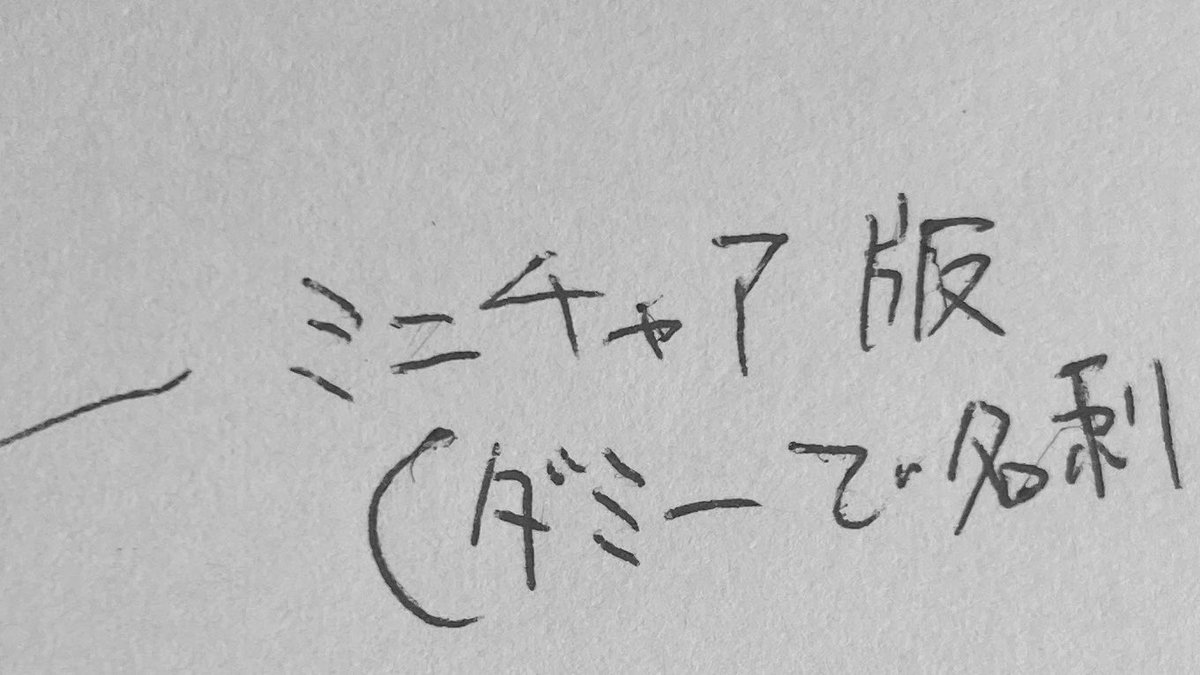 ミニチャア版
(ダミーで名刺